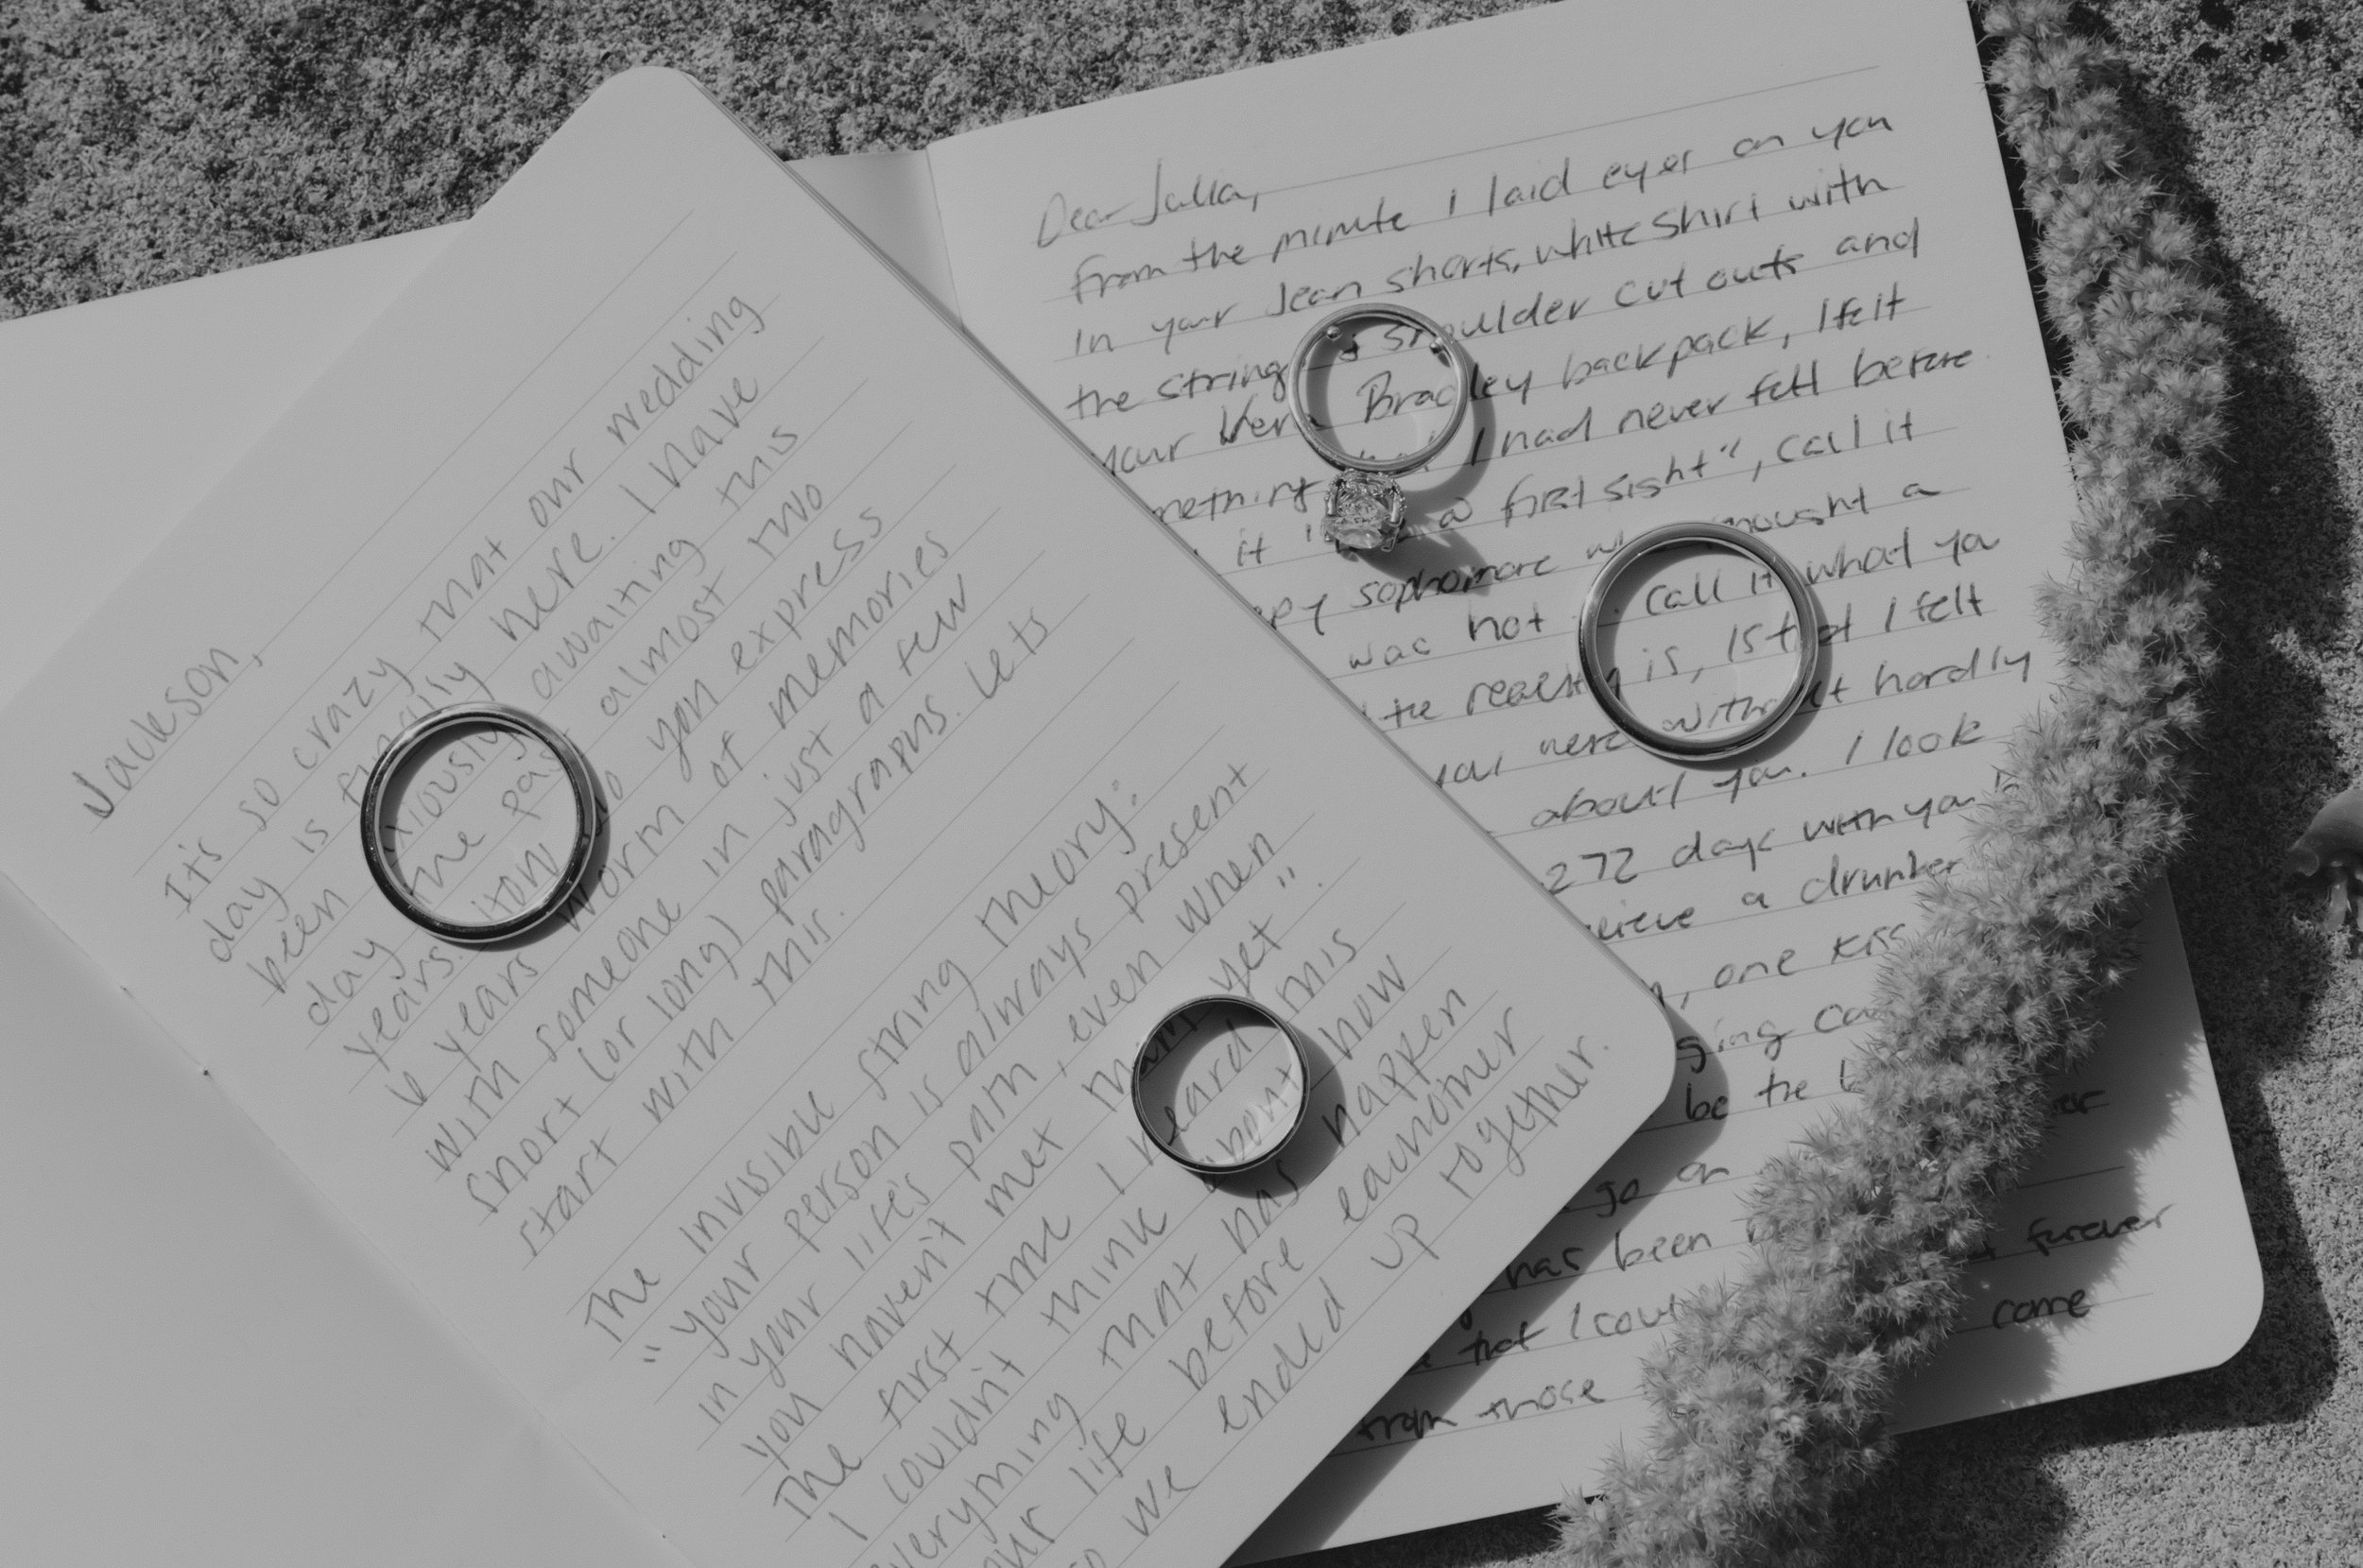 Jackson,
It's so crazy that our wedding
day is finally here. I have
been awaiting this
day the almost two
years. How do you express
6 years worth of memories
with someone in just a few
short (or long) paragraphs. Lets
start with this.
The invisible string theory:
"your person is always present
in your life's path, even when
you haven't met them yet".
The first time I heard this
I couldn't think about how
everything that has happen
our life before eachother
so we ended up together.
Dear Julia,
From the minute I laid eyes on you
in your Jean shorts, white shirt with
the string shoulder cut outs and
your Vera Bradley backpack, I felt
I had never felt before
it first sight", call it
sophomore thought a
was not call it what you
the reality is, is that I felt
were without hardly
about you. I look
272 days with you
a drunken
, one kiss
be the
go on
has been forever
that I come
from those